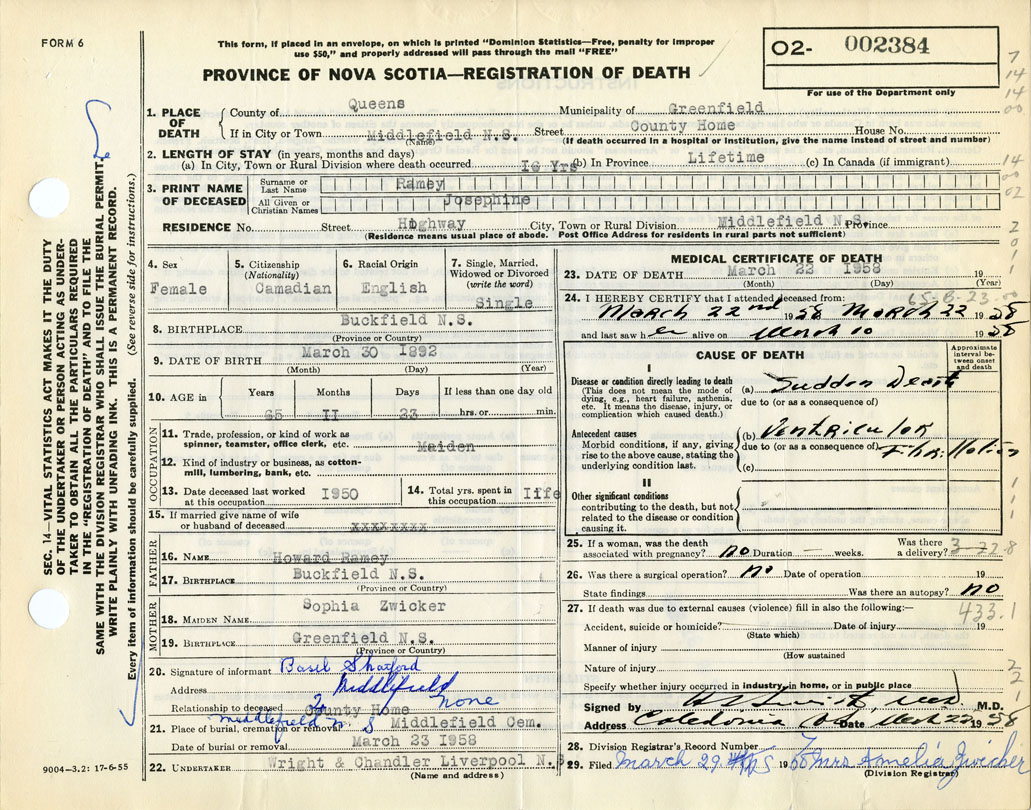 FORM 6
This form, if placed in an envelope, on which is printed "Dominion Statistics—Free, penalty for improper
use $50," and properly addressed will pass through the mail "FREE"
PROVINCE OF NOVA SCOTIA—REGISTRATION OF DEATH
O2- 002384
For use of the Department only
SEC. 14—VITAL STATISTICS ACT MAKES IT THE DUTY
OF THE UNDERTAKER OR PERSON ACTING AS UNDER-
TAKER TO OBTAIN ALL THE PARTICULARS REQUIRED
IN THE "REGISTRATION OF DEATH" AND TO FILE THE
SAME WITH THE DIVISION REGISTRAR WHO SHALL ISSUE THE BURIAL PERMIT.
WRITE PLAINLY WITH UNFADING INK. THIS IS A PERMANENT RECORD.
Every item of information should be carefully supplied. (See reverse side for instructions.)
1. PLACE OF DEATH County of Queens Municipality of Greenfield
If in City or Town Middlefield N.S. Street County Home House No.
(Name) (If death occurred in a hospital or institution, give the name instead of street and number)
2. LENGTH OF STAY (in years, months and days)
(a) In City, Town or Rural Division where death occurred I6 Yrs (b) In Province Lifetime (c) In Canada (if immigrant)
3. PRINT NAME OF DECEASED Surname or Last Name Ramey
All Given or Christian Names Josephine
RESIDENCE No. Street Highway City, Town or Rural Division Middlefield N.S. Province
(Residence means usual place of abode. Post Office Address for residents in rural parts not sufficient)
4. Sex Female
5. Citizenship (Nationality) Canadian
6. Racial Origin English
7. Single, Married, Widowed or Divorced (write the word) Single
8. BIRTHPLACE Buckfield N.S.
(Province or Country)
9. DATE OF BIRTH March 30 I892
(Month) (Day) (Year)
10. AGE in Years Months Days If less than one day old
65 II 23 hrs. or min.
OCCUPATION
11. Trade, profession, or kind of work as spinner, teamster, office clerk, etc. Maiden
12. Kind of industry or business, as cotton-mill, lumbering, bank, etc.
13. Date deceased last worked at this occupation I950
14. Total yrs. spent in this occupation Life
15. If married give name of wife or husband of deceased xxxxxxxx
FATHER
16. NAME Howard Ramey
17. BIRTHPLACE Buckfield N.S.
(Province or Country)
MOTHER
18. MAIDEN NAME Sophia Zwicker
19. BIRTHPLACE Greenfield N.S.
(Province or Country)
20. Signature of informant Basil
Address Middlefield
Relationship to deceased County Home none
21. Place of burial, cremation or removal Middlefield N. S Middlefield Cem.
Date of burial or removal March 23 I958
22. UNDERTAKER Wright & Chandler Liverpool N.S
(Name and address)
9004—3.2: 17-6-55
MEDICAL CERTIFICATE OF DEATH
23. DATE OF DEATH March 22 I958 19
(Month) (Day) (Year)
65-8-23
24. I HEREBY CERTIFY that I attended deceased from:
March 22nd 1958 March 22 1958
and last saw her alive on March 10 1958
CAUSE OF DEATH
Approximate interval between onset and death
I
Disease or condition directly leading to death
(This does not mean the mode of dying, e.g., heart failure, asthenia, etc. It means the disease, injury, or complication which caused death.)
(a) Sudden Death
due to (or as a consequence of)
Antecedent causes
Morbid conditions, if any, giving rise to the above cause, stating the underlying condition last.
(b) Ventricular
due to (or as a consequence of) Fibrillation
(c)
II
Other significant conditions contributing to the death, but not related to the disease or condition causing it.
25. If a woman, was the death associated with pregnancy? no Duration — weeks. Was there a delivery?
26. Was there a surgical operation? no Date of operation 19
State findings Was there an autopsy? no
27. If death was due to external causes (violence) fill in also the following:—
433.1
Accident, suicide or homicide? Date of injury 19
(State which)
Manner of injury
(How sustained
Nature of injury
Specify whether injury occurred in industry, in home, or in public place
Signed by M.D.
Address Caledonia Date March 22 1958
28. Division Registrar's Record Number 7
29. Filed March 29 1958 Mrs Amelia Zwicker
(Division Registrar)